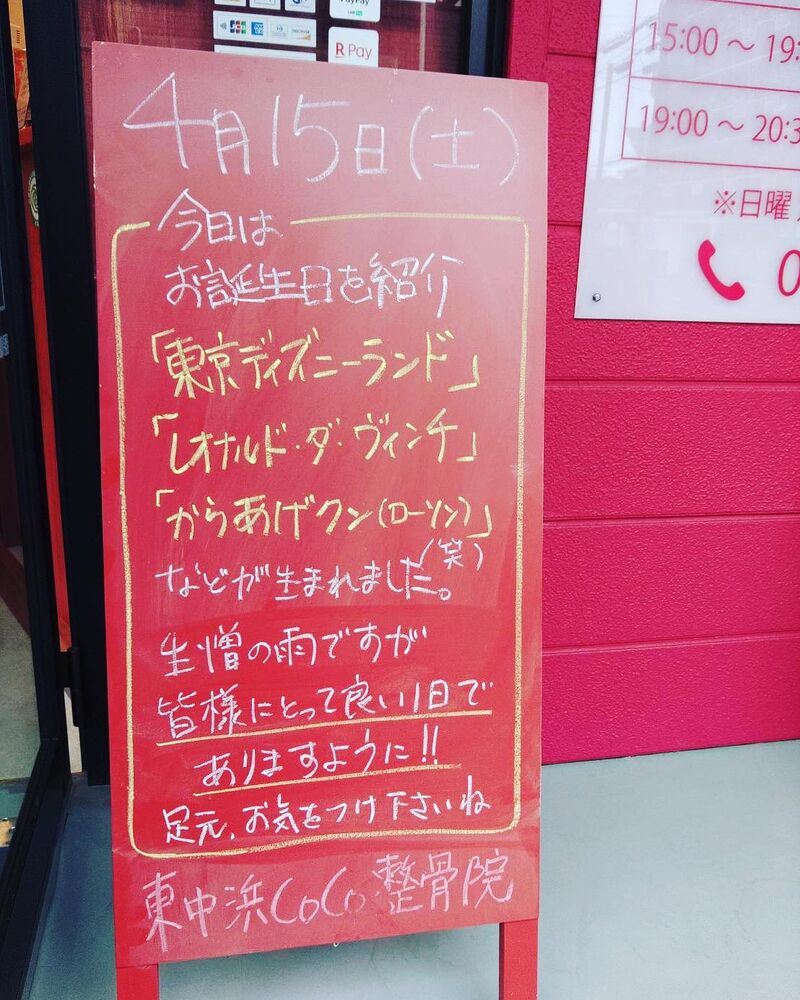 PayPay
JCB
DISCOVER
R Pay
15:00 ～ 19:
19:00 ～ 20:3
※日曜
0
4月15日(土)
今日は
お誕生日を紹介
「東京ディズニーランド」
「レオナルド・ダ・ヴィンチ」
「からあげクン(ローソン)」
などが生まれました。(笑)
生憎の雨ですが
皆様にとって良い1日で
ありますように!!
足元、お気をつけ下さいね
東中浜CoCo整骨院